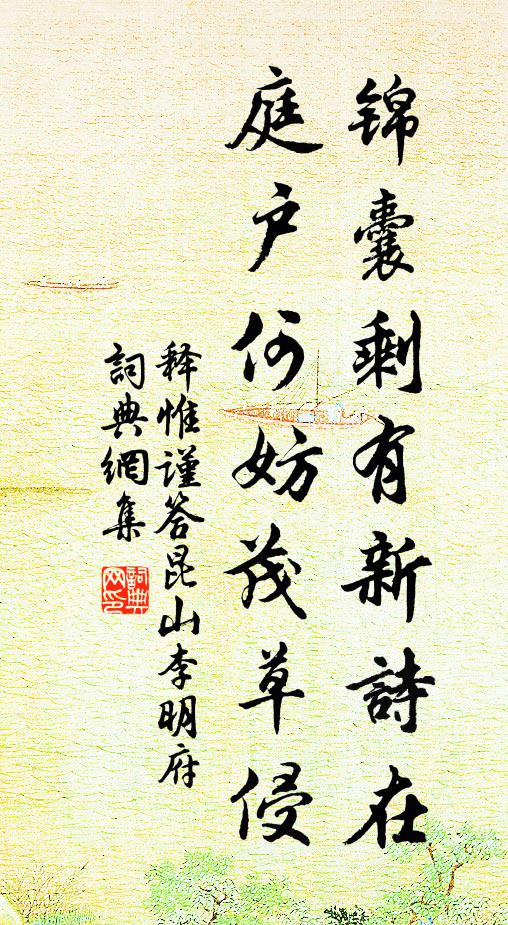 锦囊剩有新詩在
庭户何妨茂草侵
释惟谨答昆山李明府
詞典網集
詞典网印